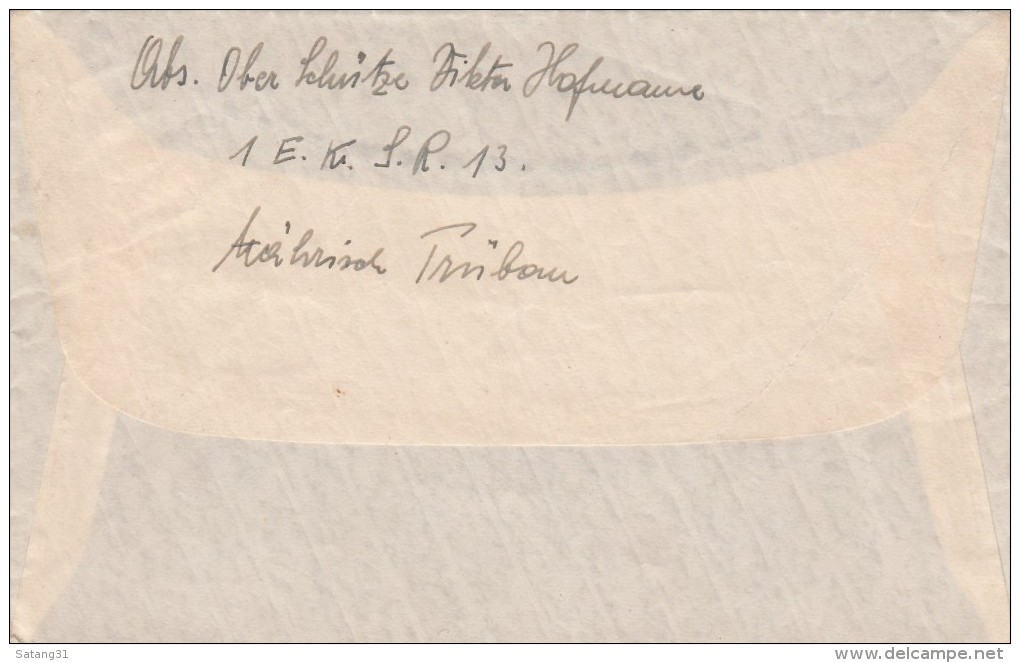 Abs. Ober Schütze Viktor Hofmann
1 E. K. S. R. 13.
Mährisch Trübau
Satang31
www.delcampe.net